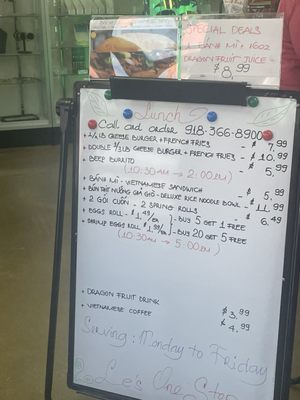 SPECIAL DEALS
1 BÁNH MÌ + 16OZ
DRAGON FRUIT JUICE
$8.99
Lunch
Call and order 918-366-8900
+ 1/4 LB CHEESE BURGER + FRENCH FRIES - $7.99
+ DOUBLE 1/3 LB CHEESE BURGER + FRENCH FRIES - $10.99
+ BEEF BURRITO - $5.99
(10:30AM → 2:00PM)
+ BÁNH MÌ - VIETNAMESE SANDWICH - $5.99
+ BÚN THỊT NƯỚNG CHẢ GIÒ - DELUXE RICE NOODLE BOWL - $11.99
+ 2 GỎI CUỐN - 2 SPRING ROLLS - $6.49
+ EGGS ROLL - $1.49/EA - BUY 5 GET 1 FREE
+ SHRIMP EGGS ROLL $1.99/EA - BUY 20 GET 5 FREE
(10:30AM → 5:00PM)
+ DRAGON FRUIT DRINK $3.99
+ VIETNAMESE COFFEE $4.99
Serving: Monday to Friday
Le's One Stop